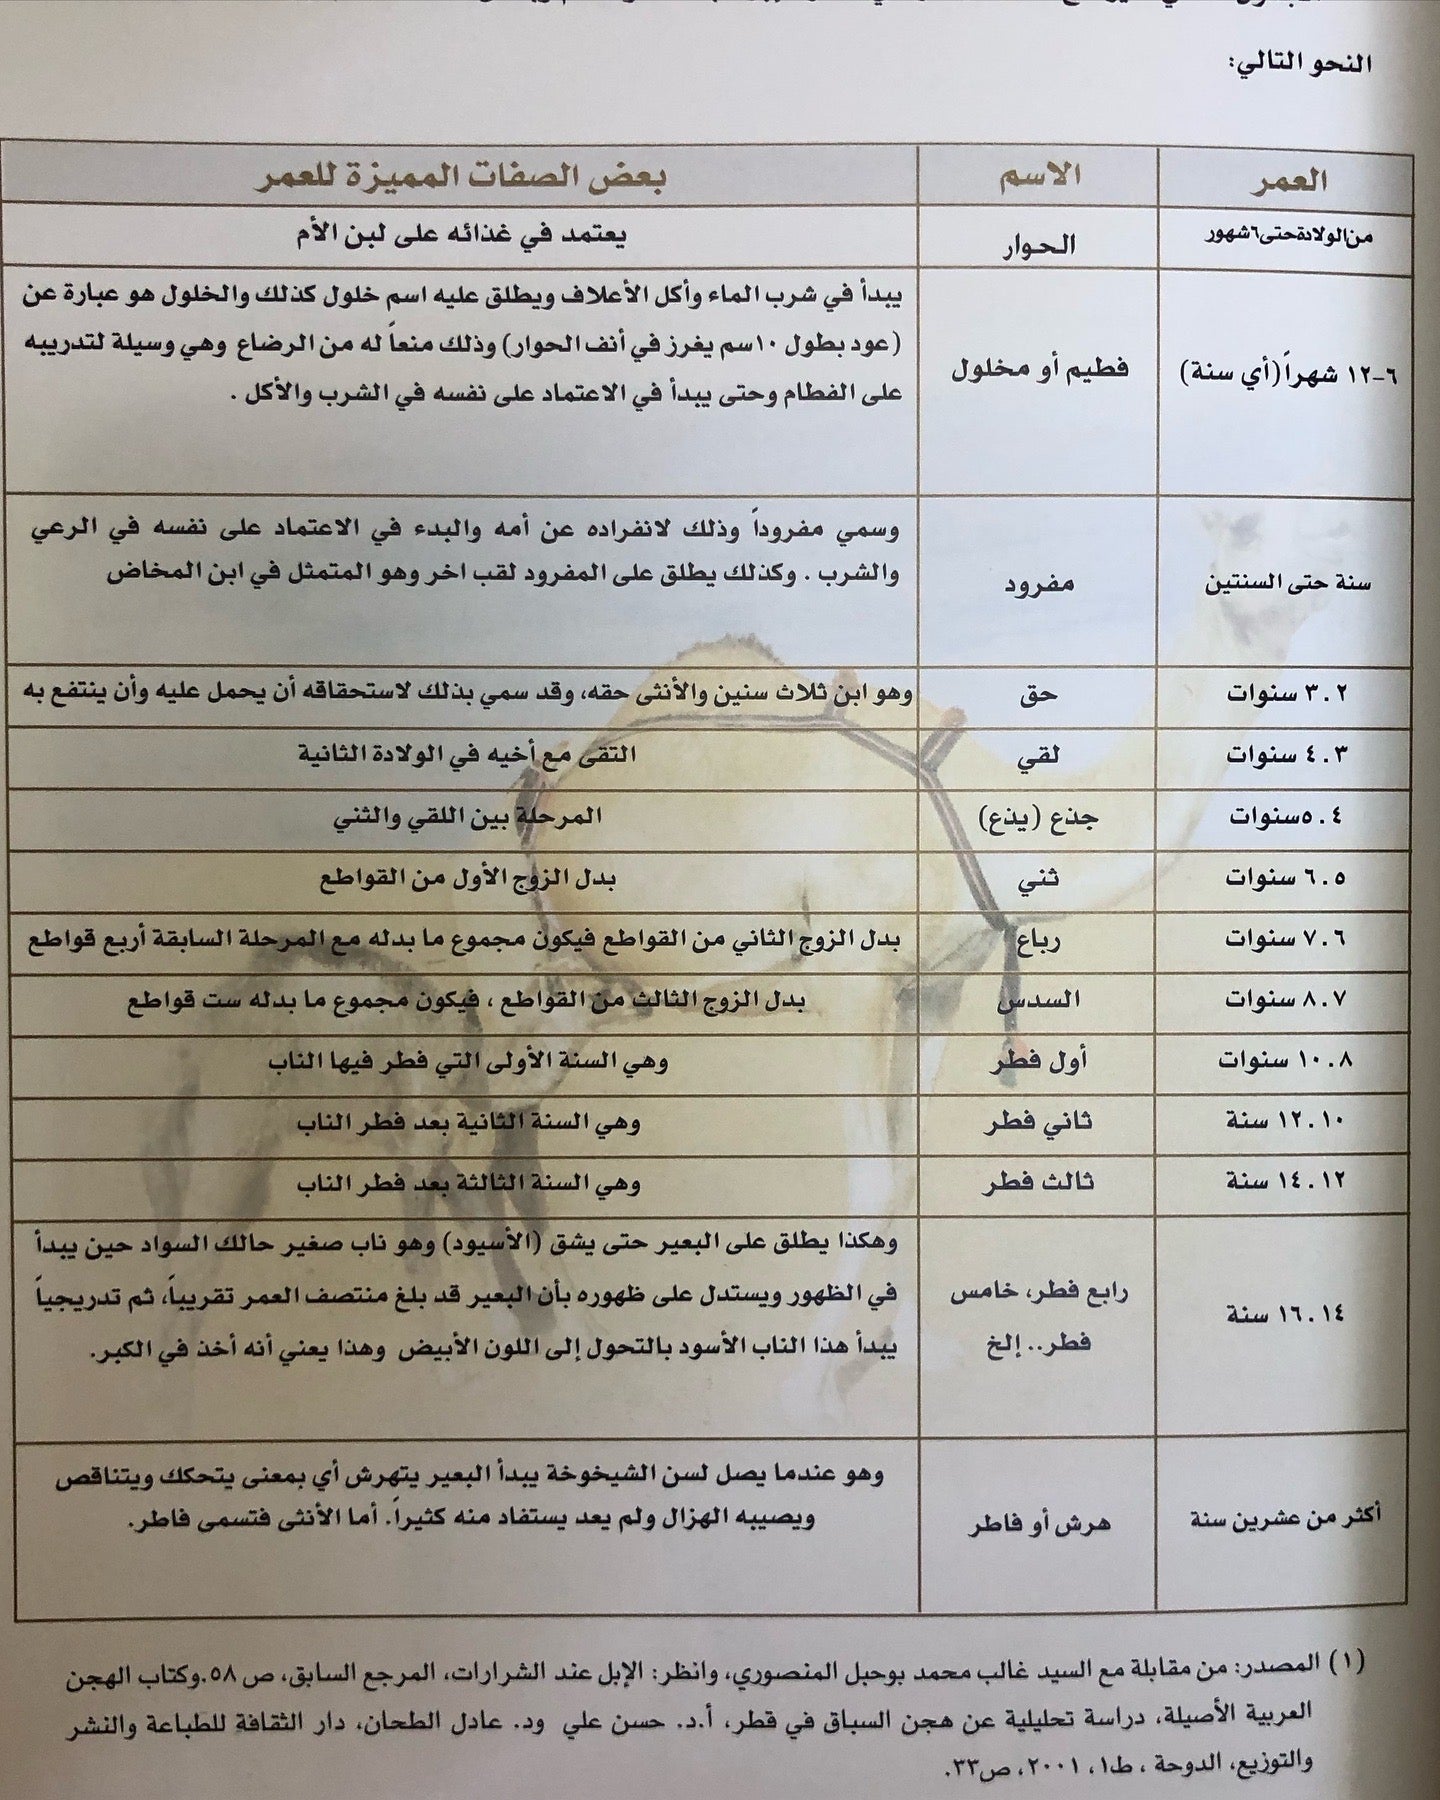 النحو التالي:
العمر الاسم بعض الصفات المميزة للعمر
من الولادة حتى ٦ شهور الحوار يعتمد في غذائه على لبن الأم
٦-١٢ شهراً (أي سنة) فطيم أو مخلول يبدأ في شرب الماء وأكل الأعلاف ويطلق عليه اسم خلول كذلك والخلول هو عبارة عن
(عود بطول ١٠سم يغرز في أنف الحوار) وذلك منعاً له من الرضاع وهي وسيلة لتدريبه
على الفطام وحتى يبدأ في الاعتماد على نفسه في الشرب والأكل .
سنة حتى السنتين مفرود وسمي مفروداً وذلك لانفراده عن أمه والبدء في الاعتماد على نفسه في الرعي
والشرب . وكذلك يطلق على المفرود لقب اخر وهو المتمثل في ابن المخاض
٣.٢ سنوات حق وهو ابن ثلاث سنين والأنثى حقه، وقد سمي بذلك لاستحقاقه أن يحمل عليه وأن ينتفع به
٤.٣ سنوات لقي التقى مع أخيه في الولادة الثانية
٥.٤ سنوات جذع (يذع) المرحلة بين اللقي والثني
٦.٥ سنوات ثني بدل الزوج الأول من القواطع
٧.٦ سنوات رباع بدل الزوج الثاني من القواطع فيكون مجموع ما بدله مع المرحلة السابقة أربع قواطع
٨.٧ سنوات السدس بدل الزوج الثالث من القواطع ، فيكون مجموع ما بدله ست قواطع
١٠.٨ سنوات أول فطر وهي السنة الأولى التي فطر فيها الناب
١٢.١٠ سنة ثاني فطر وهي السنة الثانية بعد فطر الناب
١٤.١٢ سنة ثالث فطر وهي السنة الثالثة بعد فطر الناب
١٦.١٤ سنة رابع فطر، خامس فطر.. إلخ وهكذا يطلق على البعير حتى يشق (الأسيود) وهو ناب صغير حالك السواد حين يبدأ
في الظهور ويستدل على ظهوره بأن البعير قد بلغ منتصف العمر تقريباً، ثم تدريجياً
يبدأ هذا الناب الأسود بالتحول إلى اللون الأبيض وهذا يعني أنه أخذ في الكبر.
أكثر من عشرين سنة هرش أو فاطر وهو عندما يصل لسن الشيخوخة يبدأ البعير يتهرش أي بمعنى يتحكك ويتناقص
ويصيبه الهزال ولم يعد يستفاد منه كثيراً. أما الأنثى فتسمى فاطر.
(١) المصدر: من مقابلة مع السيد غالب محمد بوحبل المنصوري، وانظر: الإبل عند الشرارات، المرجع السابق، ص ٥٨.وكتاب الهجن
العربية الأصيلة، دراسة تحليلية عن هجن السباق في قطر، أ.د. حسن علي ود. عادل الطحان، دار الثقافة للطباعة والنشر
والتوزيع، الدوحة ، ط١، ٢٠٠١، ص٣٣.